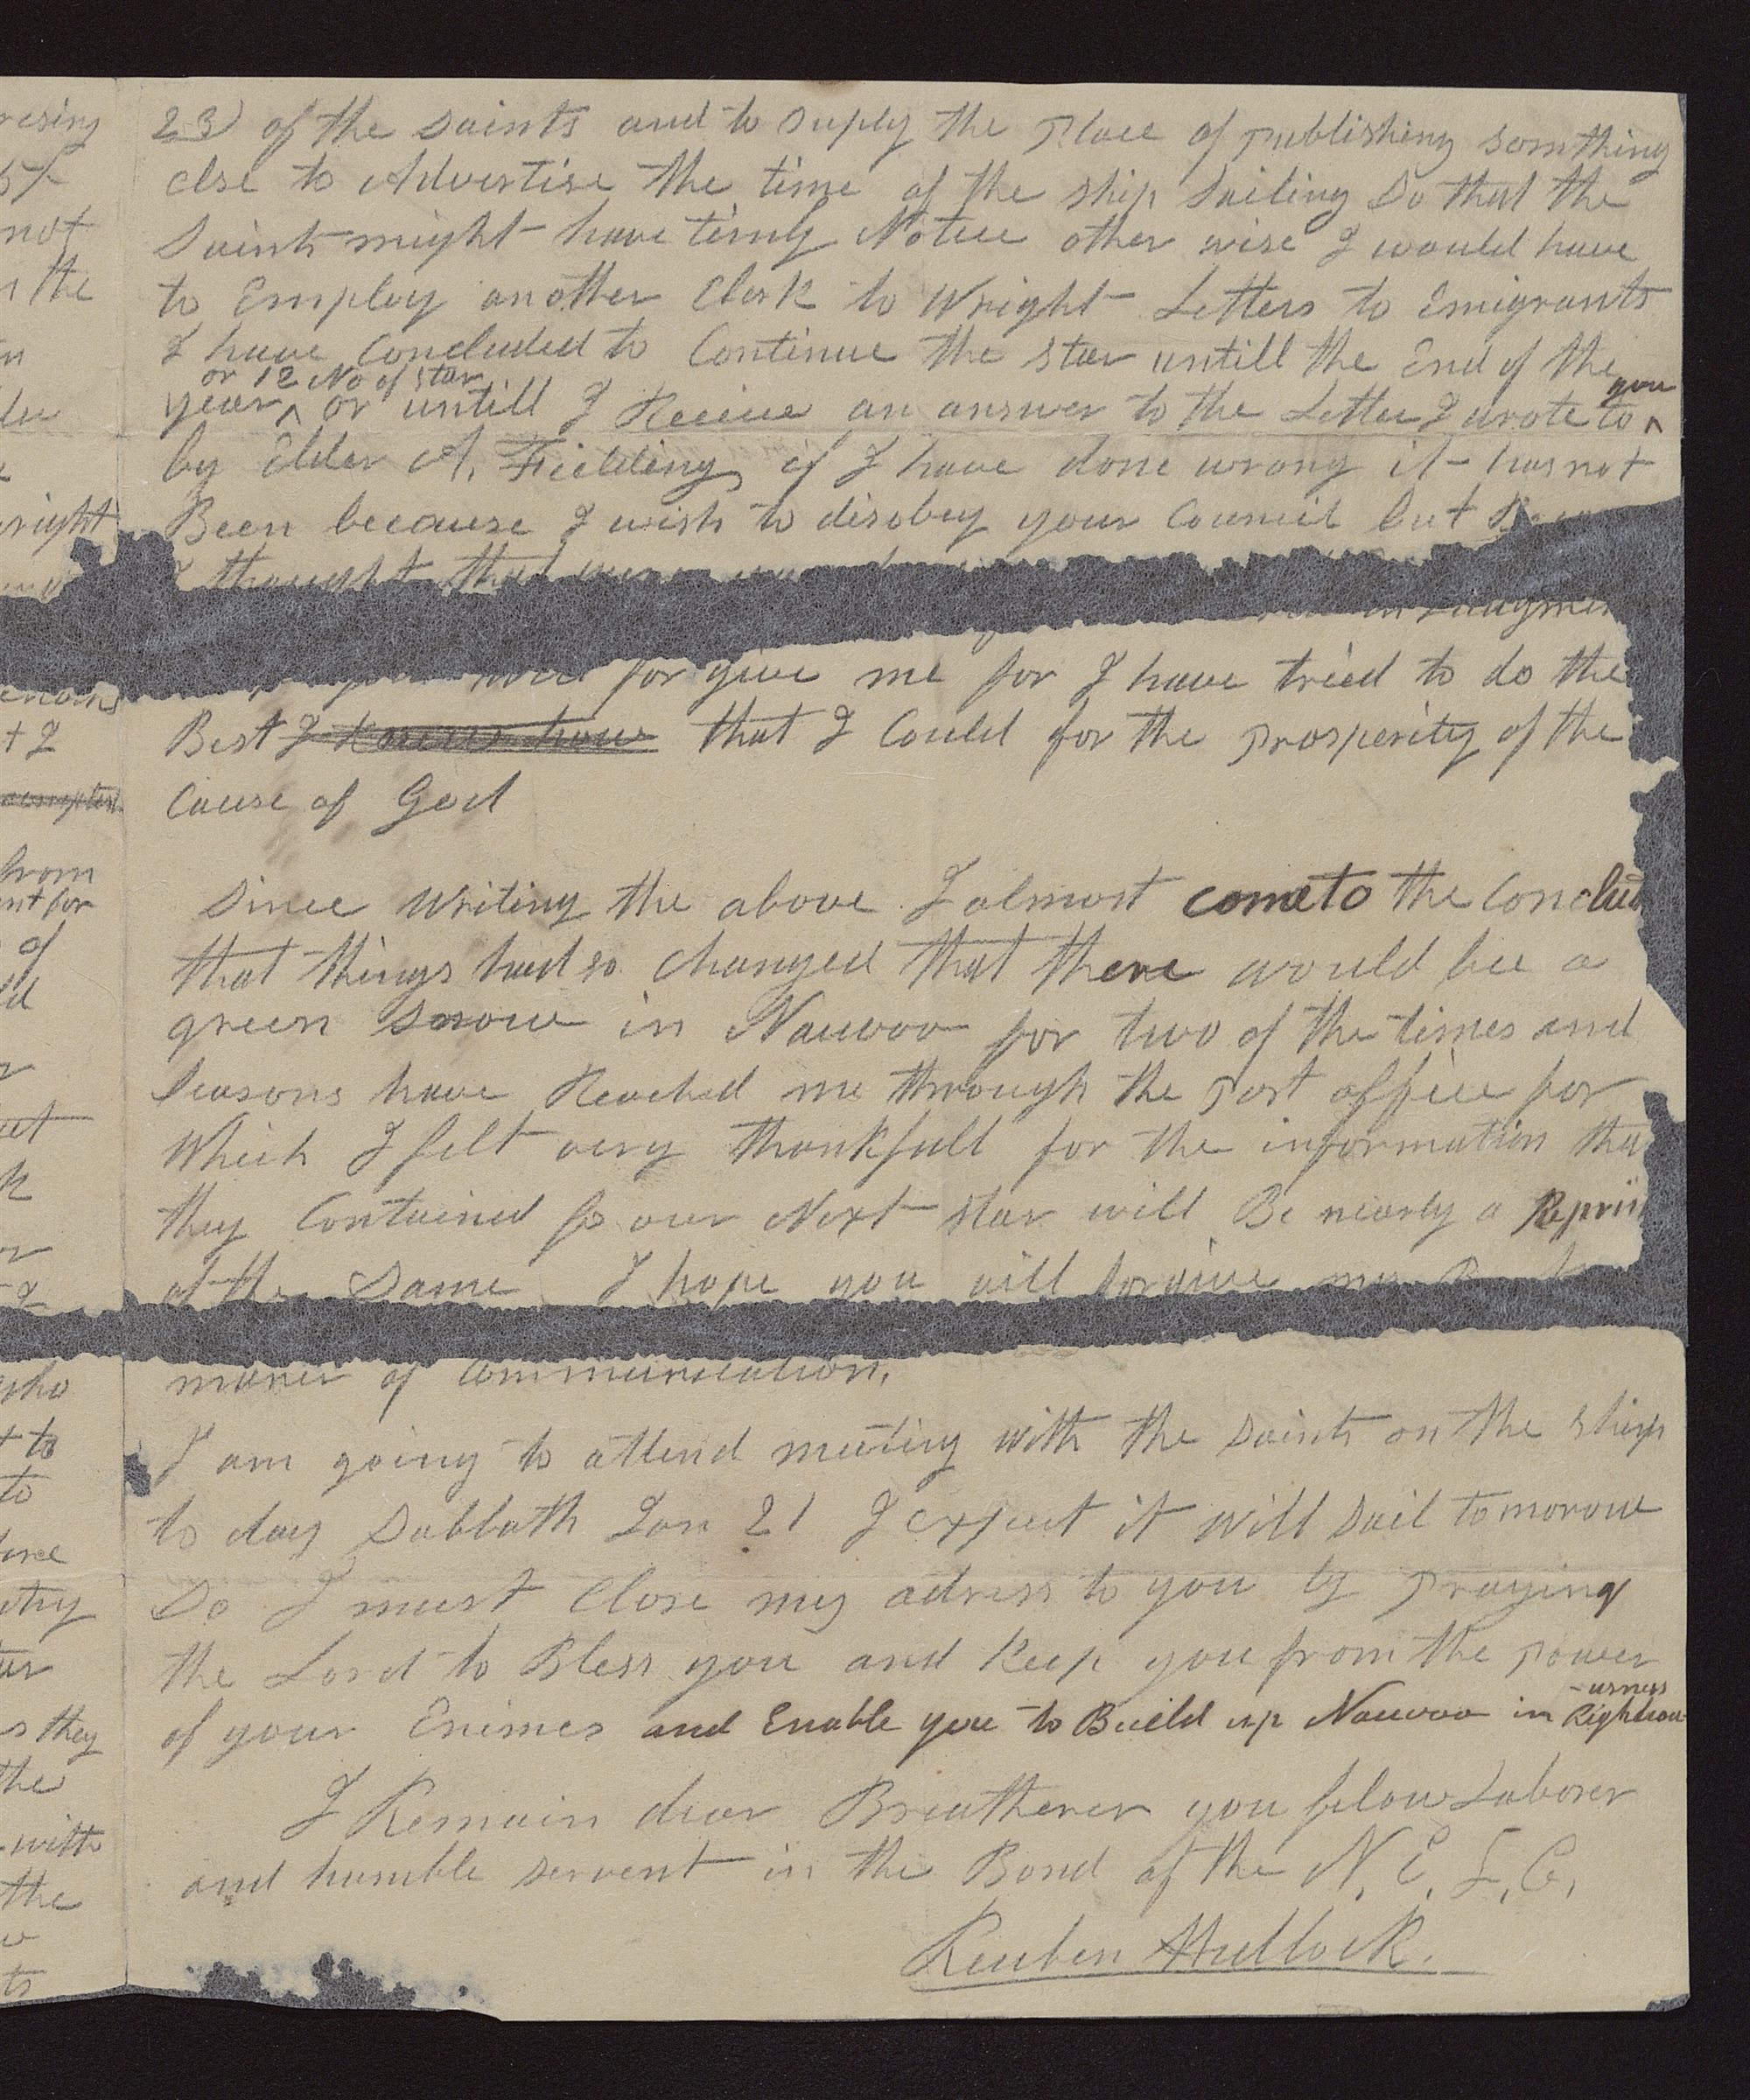 resing
23) of the Saints and to Suply the Place of publishing somthing
else to Advertise the time of the ship Sailing So that the
not
Saints might have timly Notice other wise I would have
the
to Employ another Clerk to Wright Letters to Emigrants
I have Concluded to Continue the star untill the End of the
or 12 No of star
you
year ^ or untill I Receive an answer to the Letter I wrote to ^
by Elder A. Fielding if I have done wrong it has not
wright
Been because I wish to disobey your Council but
I thought that
forgive me for I have tried to do the
t I
Best I knew how that I Could for the prosperity of the
Cause of God
from
nt for
Since Writing the above I almost come to the Conclu
of
that things had so changed that there would bee a
green Snow in Nauvoo for two of the times and
Seasons have Reached me through the Post office for
Which I felt very thankfull for the information tha
they Contained so our Next star will Be nearly a Reprin
of the Same I hope you will forgive my
maner of Communication.
I am going to attend meeting with the Saints on the Ship
t to
to
to day Sabbath Jan 21 I expect it will Sail tomorow
So I must Close my adress to you by Praying
the Lord to Bless you and Keep you from the Power
-usness
s they
of your Enimes and Enable you to Build up Nauvoo in Righteou
the
I Remain dear Breatheren you felow Laborer
with
the
and humble Servent in the Bond of the N. E. L. C.
ts
Reuben Hedlock.